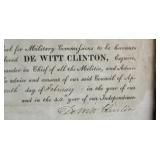 for Military Commissions to be
DE WITT CLINTON, Esquire,
mander in Chief of all the Militia, and
advice and consent of our said Council of
day of February in the year of our
and in the year of our Independence
De Witt Clinton